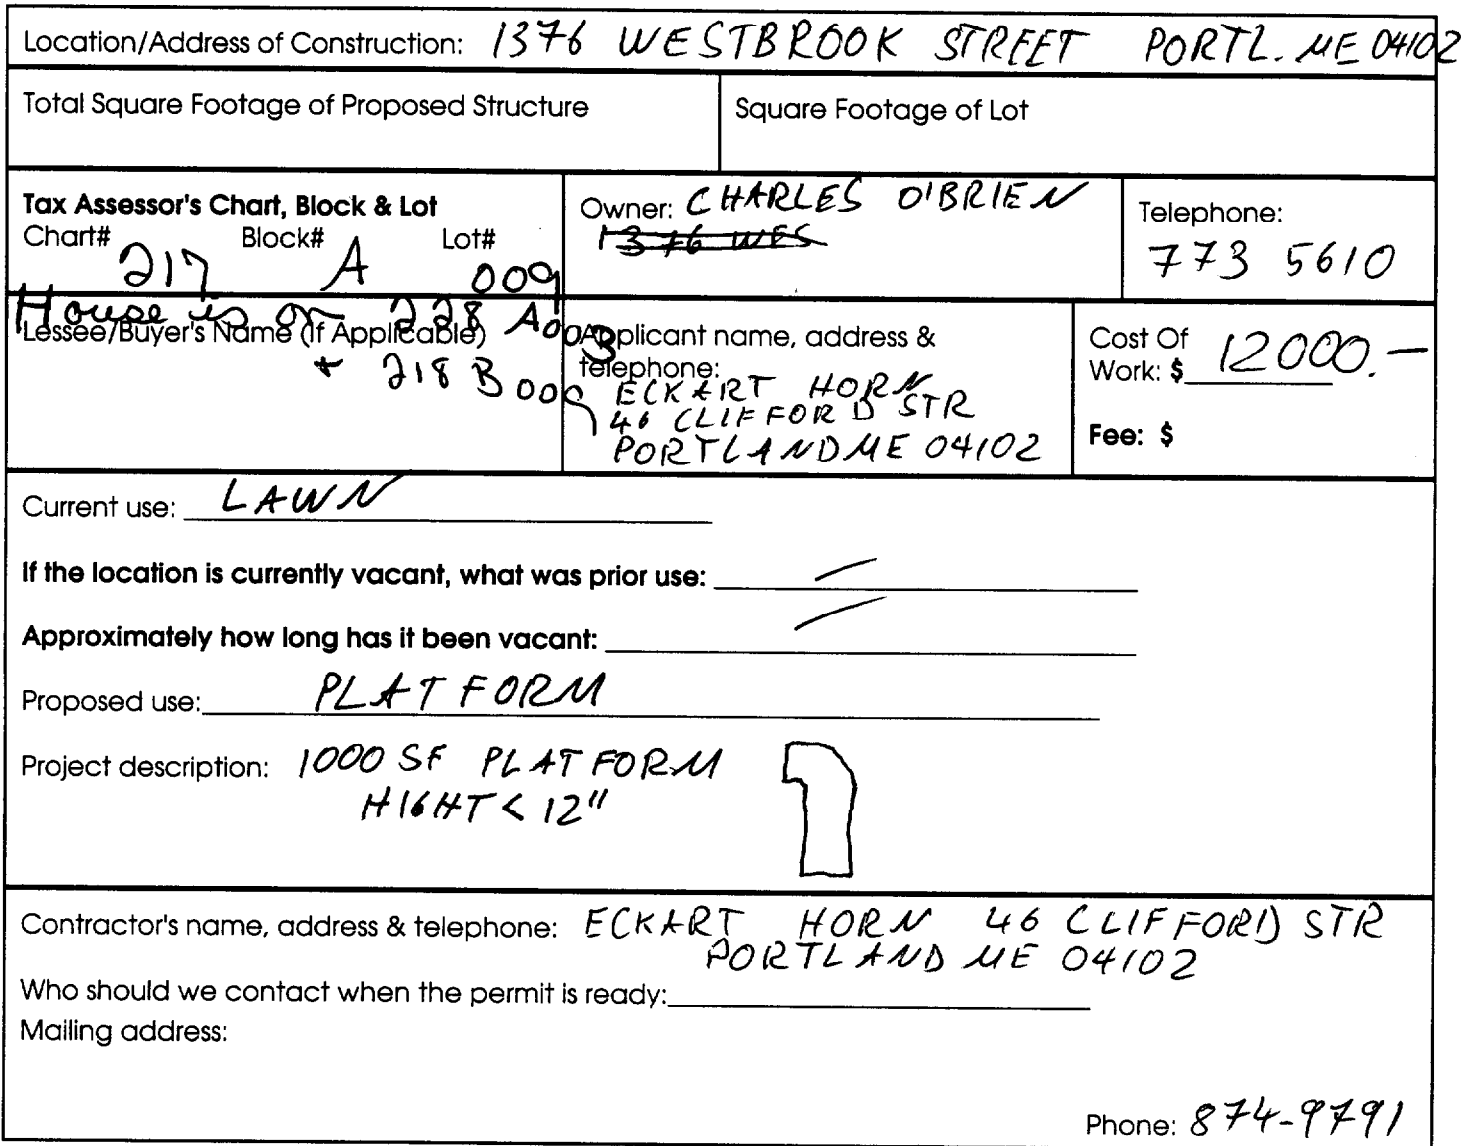 Location/Address of Construction: 1376 WESTBROOK STREET PORTL. ME 04102
Total Square Footage of Proposed Structure
Square Footage of Lot
Tax Assessor's Chart, Block & Lot
Chart# Block# Lot#
217 A 009
Owner: CHARLES O'BRIEN
1376 WES
Telephone:
773 5610
House is on 228 A003
+ 218 B 009
Lessee/Buyer's Name (If Applicable)
Applicant name, address &
telephone:
ECKART HORN
46 CLIFFORD STR
PORTLAND ME 04102
Cost Of
Work: $ 12000.—
Fee: $
Current use: LAWN
If the location is currently vacant, what was prior use: —
Approximately how long has it been vacant: —
Proposed use: PLATFORM
Project description: 1000 SF PLATFORM
HIGHT < 12"
Contractor's name, address & telephone: ECKART HORN 46 CLIFFORD STR
PORTLAND ME 04102
Who should we contact when the permit is ready:
Mailing address:
Phone: 874-9791